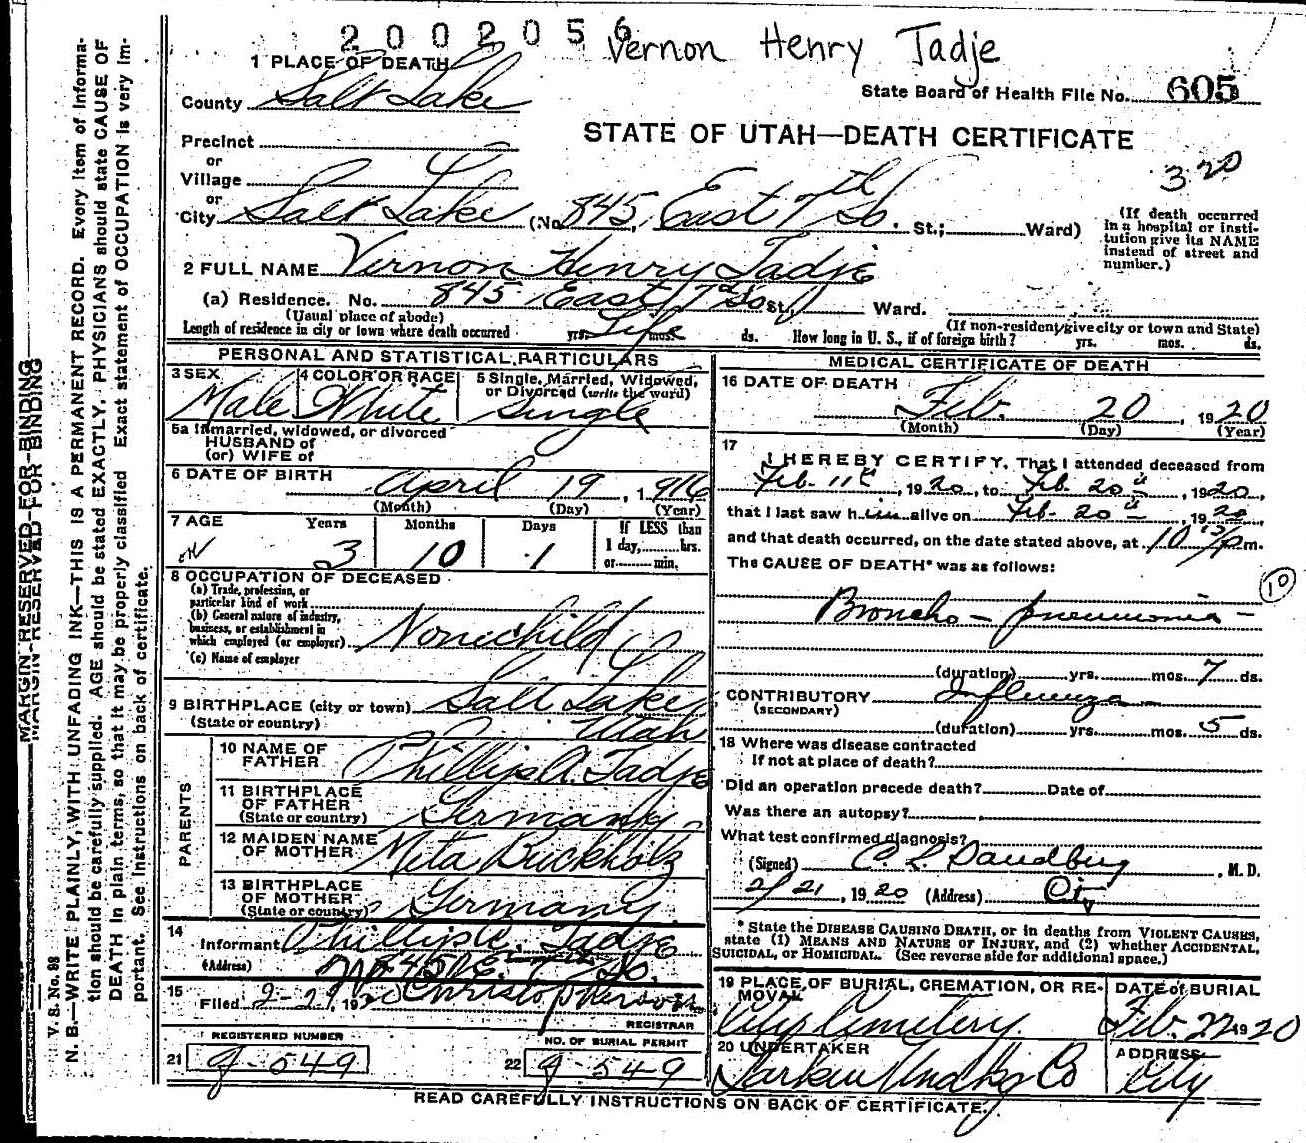 2002056 Vernon Henry Tadje
1 PLACE OF DEATH
State Board of Health File No. 605
County Salt Lake
STATE OF UTAH—DEATH CERTIFICATE
Precinct
or
Village
320
or
City Salt Lake (No. 845, East 7th So. St.; Ward)
(If death occurred in a hospital or institution give its NAME instead of street and number.)
2 FULL NAME Vernon Henry Tadje
(a) Residence. No. 845 East 7th So St., Ward.
(Usual place of abode) (If non-resident, give city or town and State)
Length of residence in city or town where death occurred yrs. Life mos. ds. How long in U. S., if of foreign birth? yrs. mos. ds.
PERSONAL AND STATISTICAL PARTICULARS
3 SEX Male
4 COLOR OR RACE White
5 Single, Married, Widowed, or Divorced (write the word) Single
5a If married, widowed, or divorced
HUSBAND of
(or) WIFE of
6 DATE OF BIRTH April 19, 1916
(Month) (Day) (Year)
7 AGE Years Months Days If LESS than
3 10 1 1 day, hrs.
or min.
8 OCCUPATION OF DECEASED
(a) Trade, profession, or
particular kind of work
(b) General nature of industry,
business, or establishment in
which employed (or employer) None child
(c) Name of employer
9 BIRTHPLACE (city or town) Salt Lake
(State or country) Utah
PARENTS
10 NAME OF FATHER Phillip A. Tadje
11 BIRTHPLACE OF FATHER (State or country) Germany
12 MAIDEN NAME OF MOTHER Meta Buckholz
13 BIRTHPLACE OF MOTHER (State or country) Germany
14
Informant Phillip A. Tadje
(Address) 845 E. 7 So.
15 Filed 2-21, 1920 Christopherson
REGISTRAR
REGISTERED NUMBER NO. OF BURIAL PERMIT
21 g-549 22 g-549
MEDICAL CERTIFICATE OF DEATH
16 DATE OF DEATH
Feb. 20, 1920
(Month) (Day) (Year)
17
I HEREBY CERTIFY, That I attended deceased from
Feb. 11th, 1920, to Feb. 20th, 1920,
that I last saw him alive on Feb. 20th, 1920,
and that death occurred, on the date stated above, at 10 15 p m.
The CAUSE OF DEATH* was as follows:
10
Broncho-pneumonia
(duration) yrs. mos. 7 ds.
CONTRIBUTORY Influenza
(SECONDARY)
(duration) yrs. mos. 5 ds.
18 Where was disease contracted
If not at place of death?
Did an operation precede death? Date of
Was there an autopsy?
What test confirmed diagnosis?
(Signed) C. L. Sandberg, M. D.
2/21, 1920 (Address) City
* State the DISEASE CAUSING DEATH, or in deaths from VIOLENT CAUSES,
state (1) MEANS AND NATURE OF INJURY, and (2) whether ACCIDENTAL,
SUICIDAL, or HOMICIDAL. (See reverse side for additional space.)
19 PLACE OF BURIAL, CREMATION, OR REMOVAL City Cemetery
DATE of BURIAL Feb. 22 1920
20 UNDERTAKER Larkin Undtkg Co
ADDRESS City
READ CAREFULLY INSTRUCTIONS ON BACK OF CERTIFICATE.
MARGIN RESERVED FOR BINDING
MARGIN RESERVED FOR BINDING
V. S. No. 98
N. B.—WRITE PLAINLY, WITH UNFADING INK—THIS IS A PERMANENT RECORD. Every item of informa-
tion should be carefully supplied. AGE should be stated EXACTLY. PHYSICIANS should state CAUSE OF
DEATH in plain terms, so that it may be properly classified. Exact statement of OCCUPATION is very im-
portant. See instructions on back of certificate.